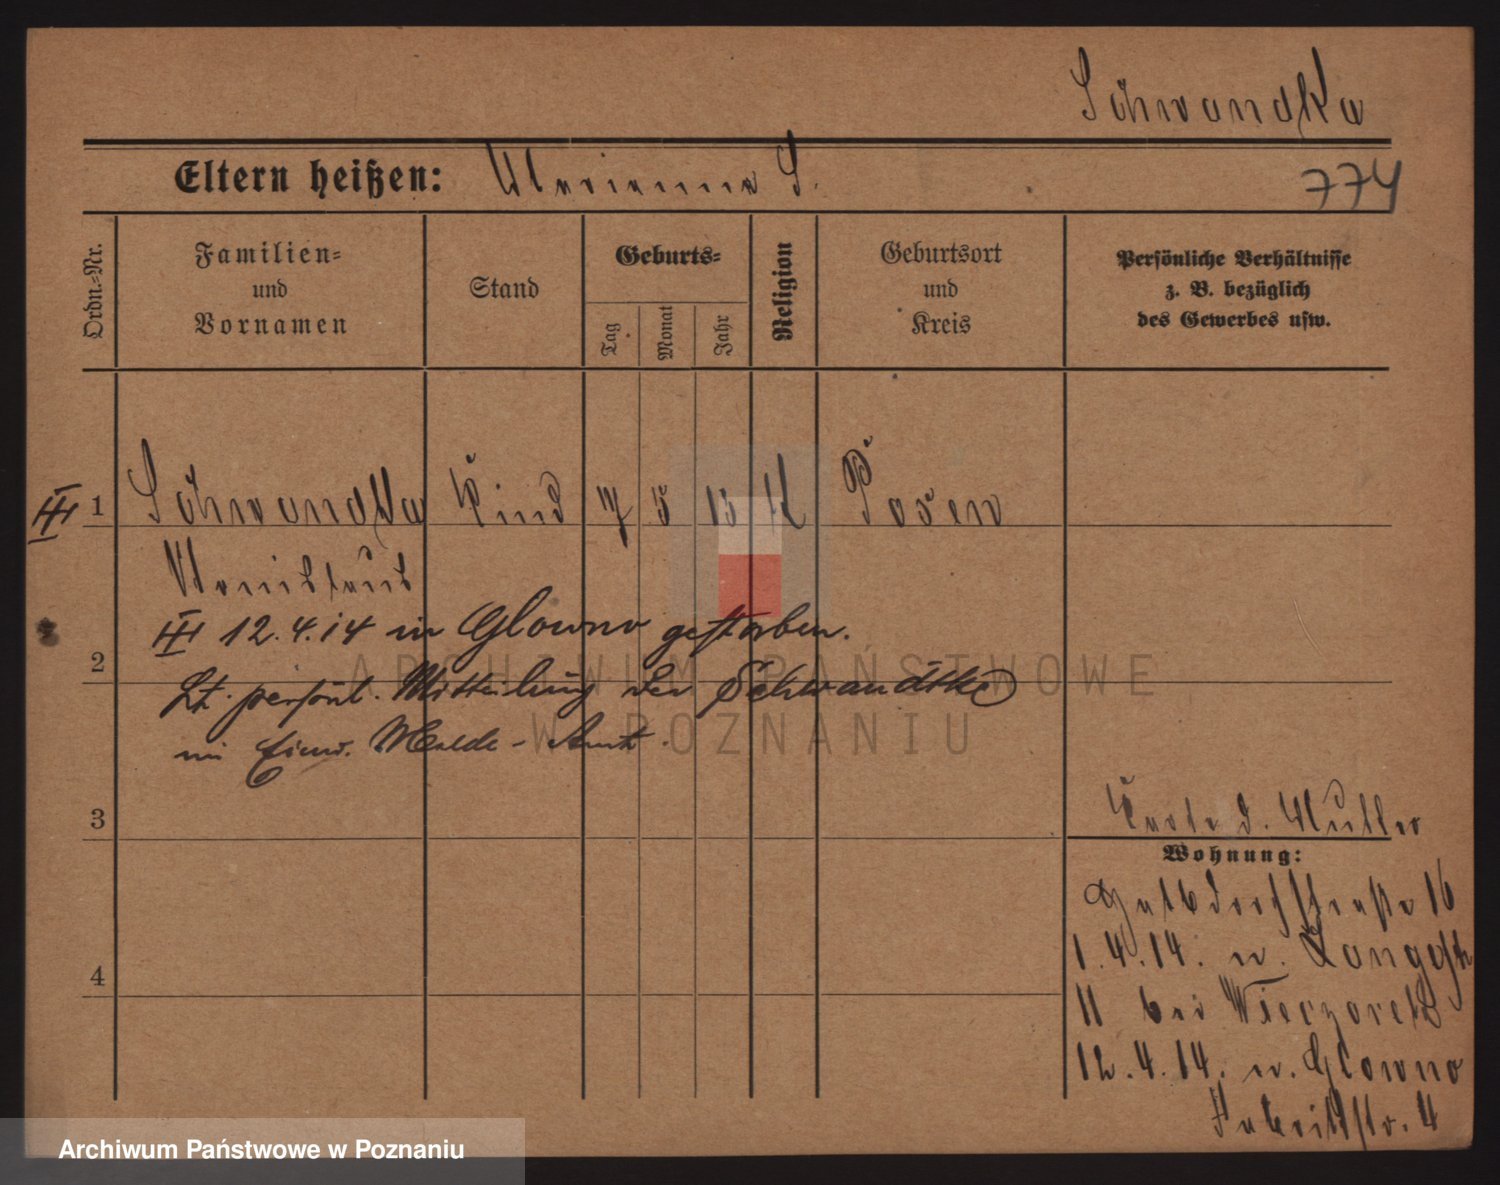 Schwandka
Eltern heißen: Marianna S.
774
Ordn.-Nr.
Familien-
und
Vornamen
Stand
Geburts-
Tag
Monat
Jahr
Religion
Geburtsort
und
Kreis
Persönliche Verhältnisse
z. B. bezüglich
des Gewerbes usw.
III 1 Schwandka Kind 7 5 13 K Posen
Stanislaus
III 12.4.14 in Glowno gestorben.
2
Lt. persönl. Mitteilung der Schwandtke
im Einw. Melde-Amt.
3
Karte d. Mutter
Wohnung:
16
1.4.14. n.
11 bei Wieczorek
4
12.4.14. n. Glowno
Fabrikstr. 4
ARCHIWUM PAŃSTWOWE
W POZNANIU
Archiwum Państwowe w Poznaniu